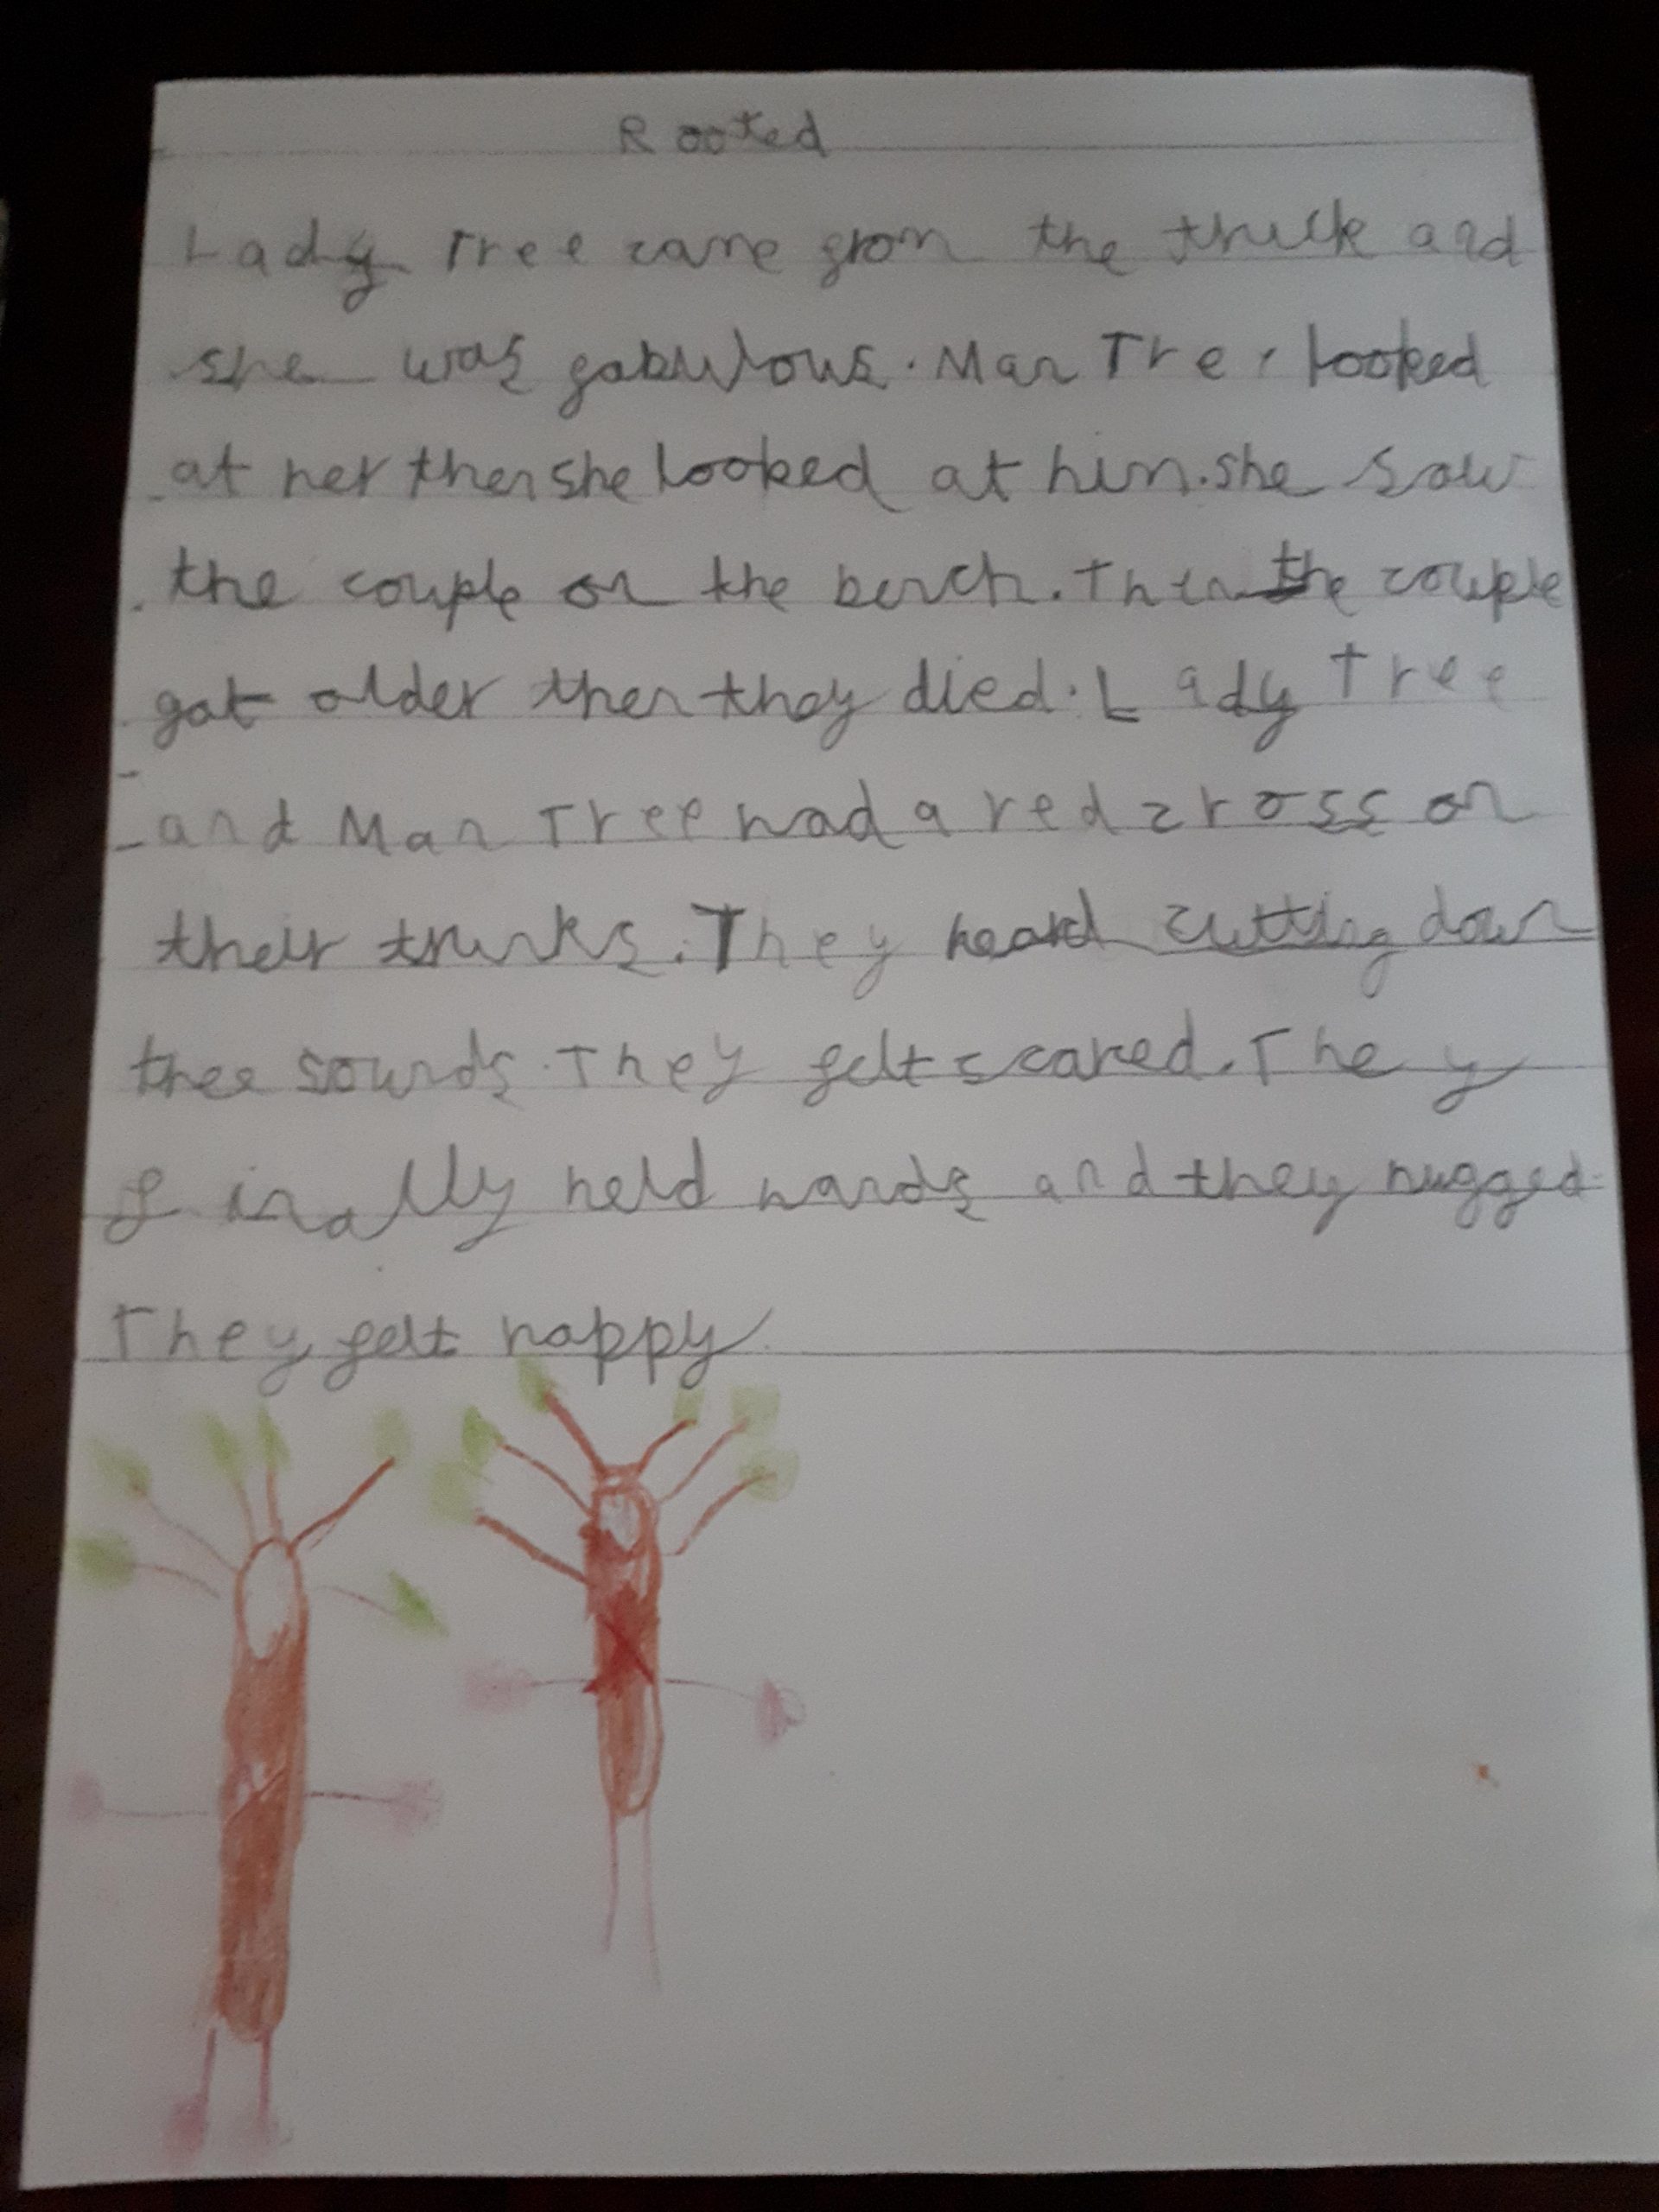 Rooted
Lady Tree came from the thick and
she was fabulous. Man Tree looked
at her then she looked at him. she saw
the couple on the bench. Then the couple
got older then they died. Lady Tree
and Man Tree had a red cross on
their trunks. They heard cutting down
tree sounds. They felt scared. They
finally held hands and they hugged.
They felt happy.